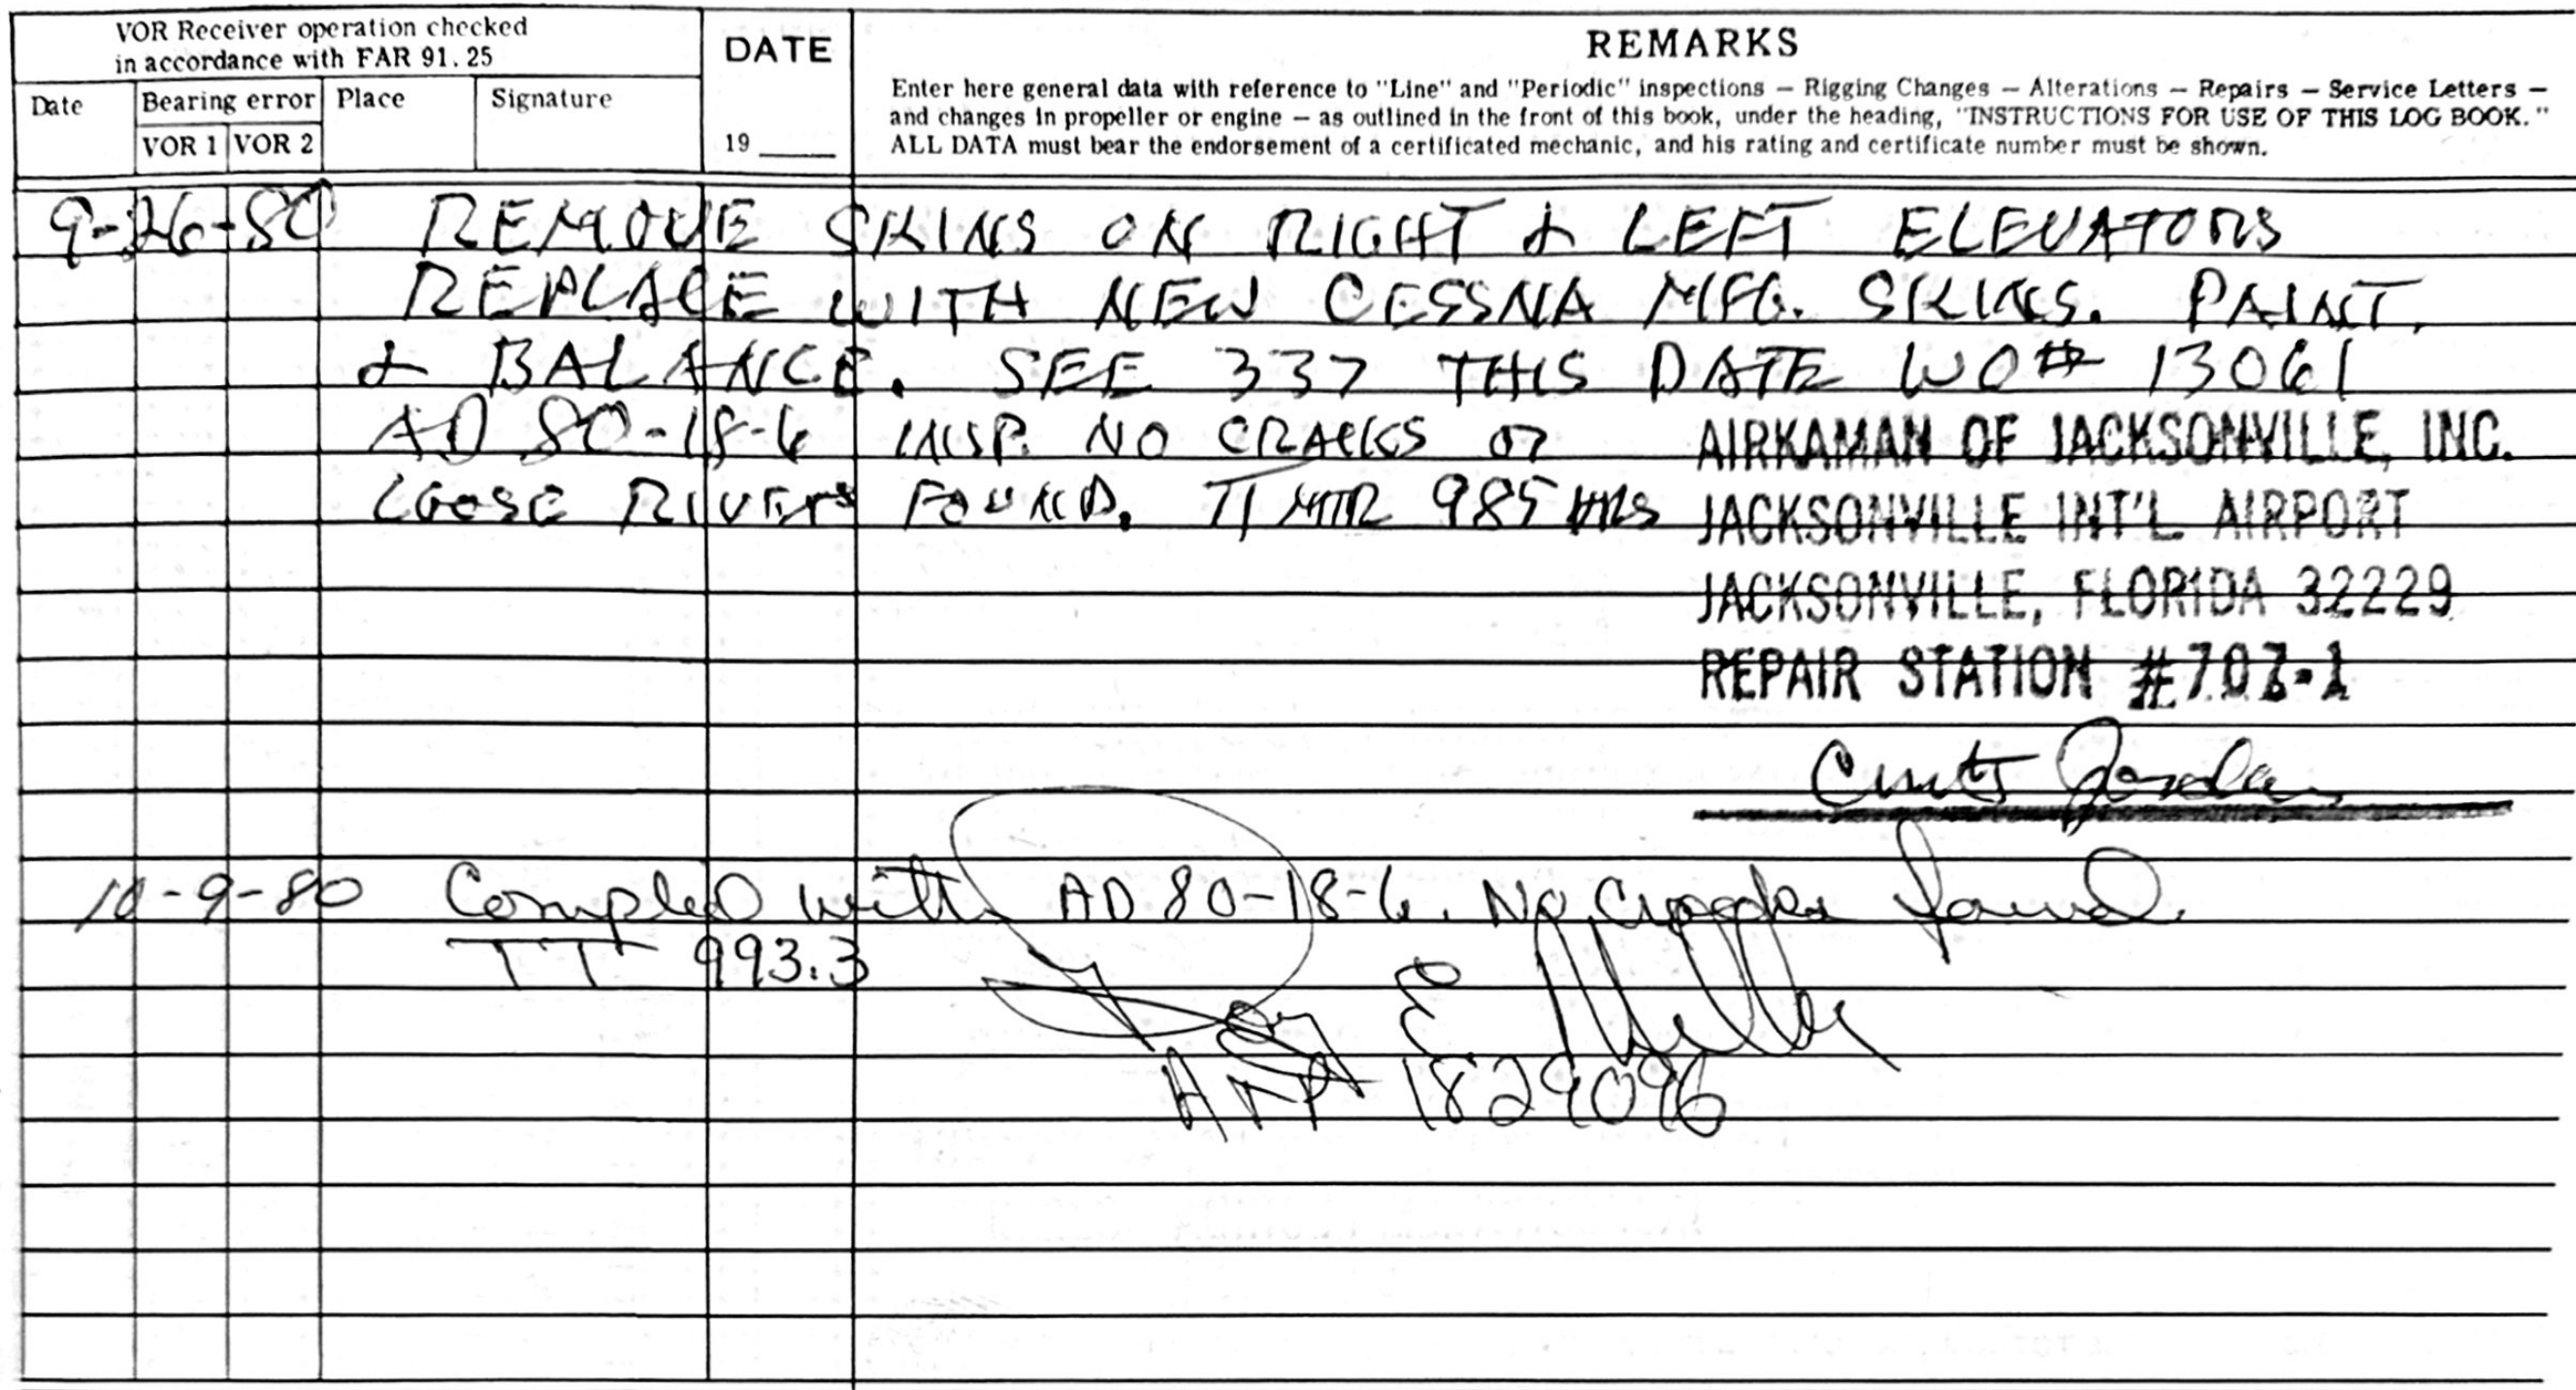 VOR Receiver operation checked
in accordance with FAR 91.25
DATE
REMARKS
Date
Bearing error
Place
Signature
VOR 1
VOR 2
19
Enter here general data with reference to "Line" and "Periodic" inspections — Rigging Changes — Alterations — Repairs — Service Letters —
and changes in propeller or engine — as outlined in the front of this book, under the heading, "INSTRUCTIONS FOR USE OF THIS LOG BOOK."
ALL DATA must bear the endorsement of a certificated mechanic, and his rating and certificate number must be shown.
9-26-80 REMOVE SKINS ON RIGHT & LEFT ELEVATORS
REPLACE WITH NEW CESSNA MFG. SKINS. PAINT,
& BALANCE. SEE 337 THIS DATE WO# 13061
AD 80-18-6 INSP. NO CRACKS or
LOOSE RIVETS FOUND. TT MTR 985 HRS
AIRKAMAN OF JACKSONVILLE, INC.
JACKSONVILLE INT'L AIRPORT
JACKSONVILLE, FLORIDA 32229
REPAIR STATION #707-1
Curtis Jordan
10-9-80 Complied with AD 80-18-6. No Cracks found.
TT 993.3
E Miller
A&P 1829096